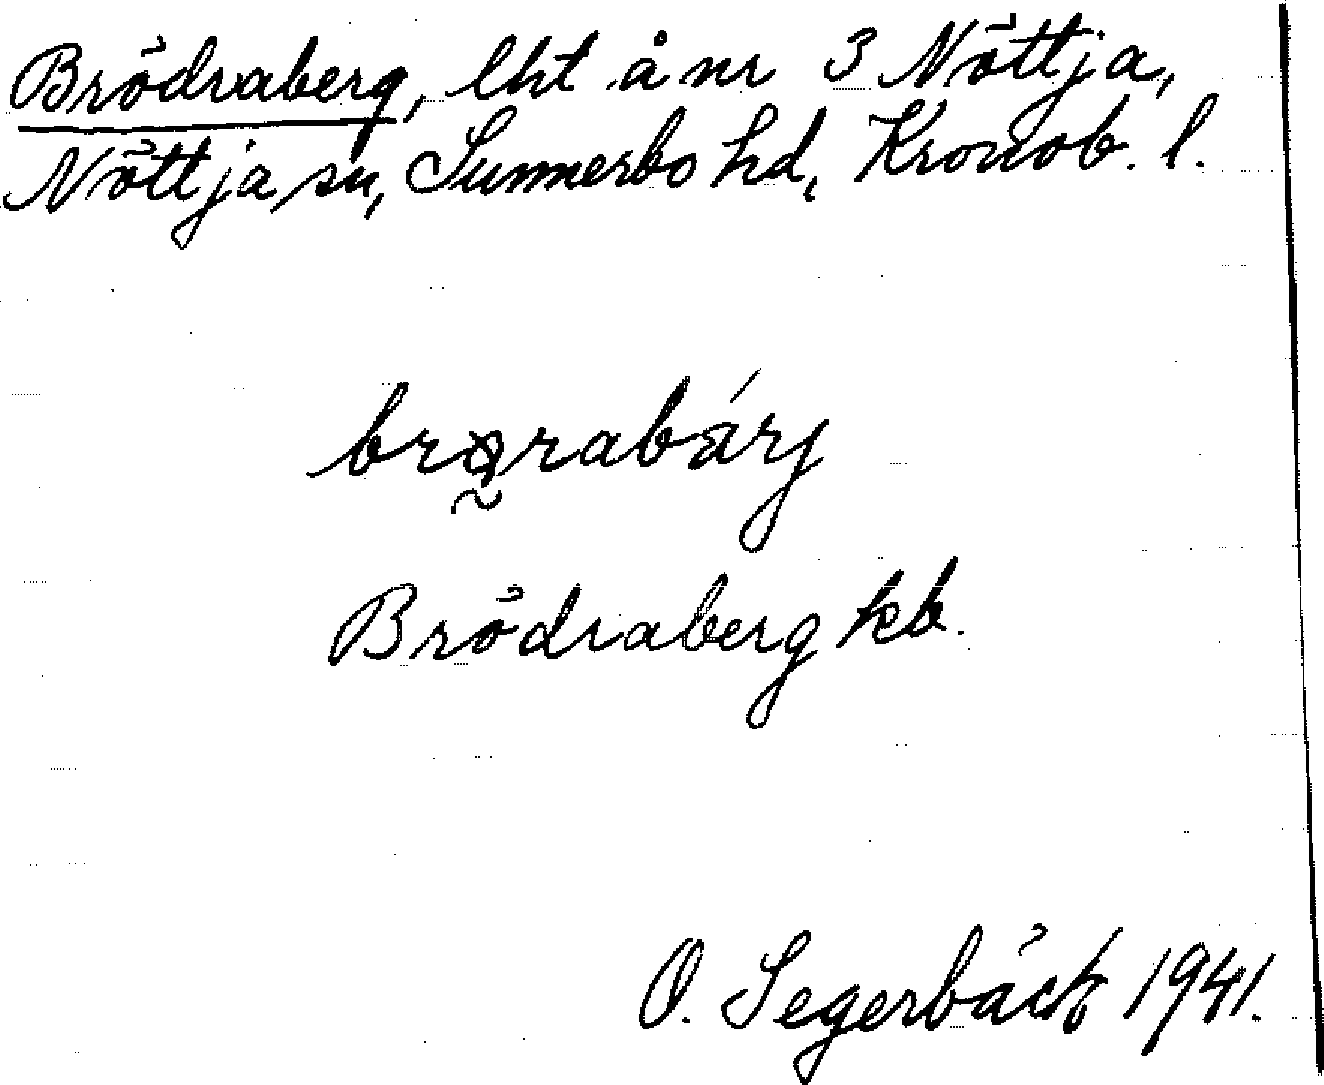 Brödraberg, lht å nr 3 Nöttja,
Nöttja sn, Sunnerbo hd, Kronob. l.
brø̰rabárj
Brödraberg kb.
O. Segerbäck 1941.